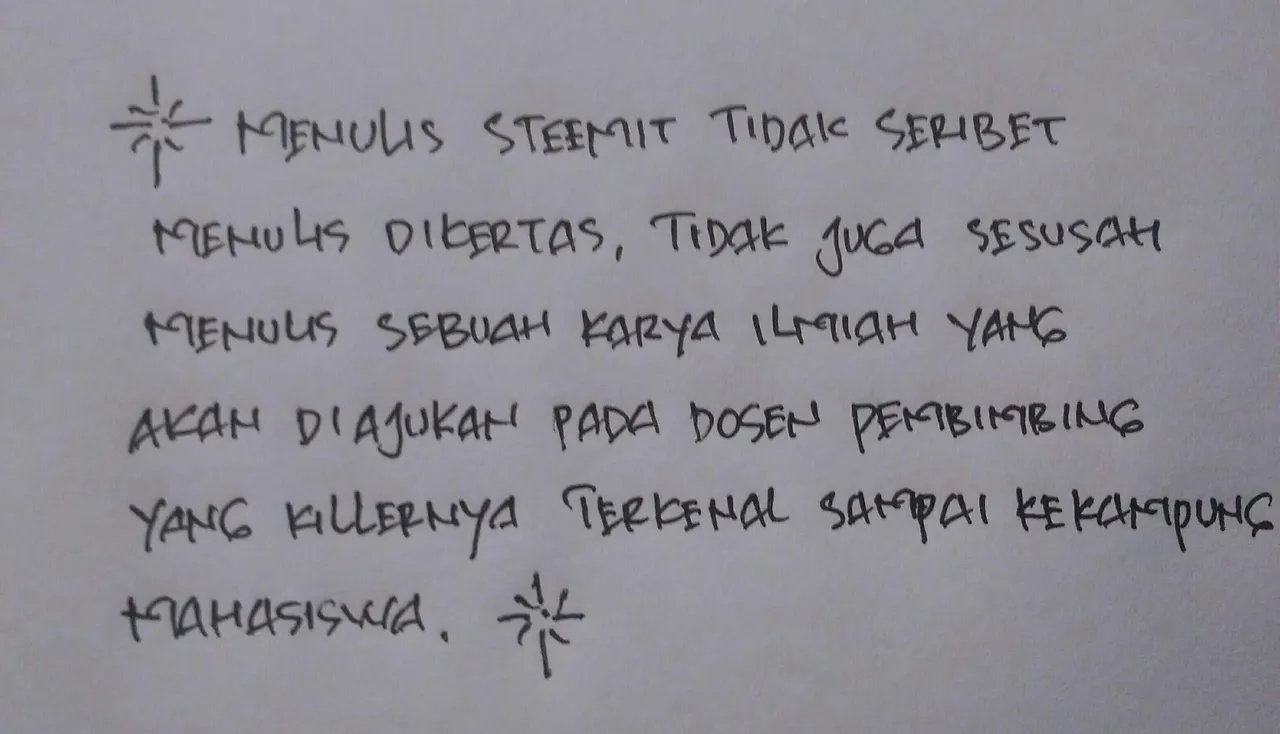 MENULIS STEEMIT TIDAK SERIBET
MENULIS DIKERTAS, TIDAK JUGA SESUSAH
MENULIS SEBUAH KARYA ILMIAH YANG
AKAN DIAJUKAN PADA DOSEN PEMBIMBING
YANG KILLERNYA TERKENAL SAMPAI KEKAMPUNG
MAHASISWA.